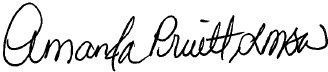 Amanda Pruett LMSW